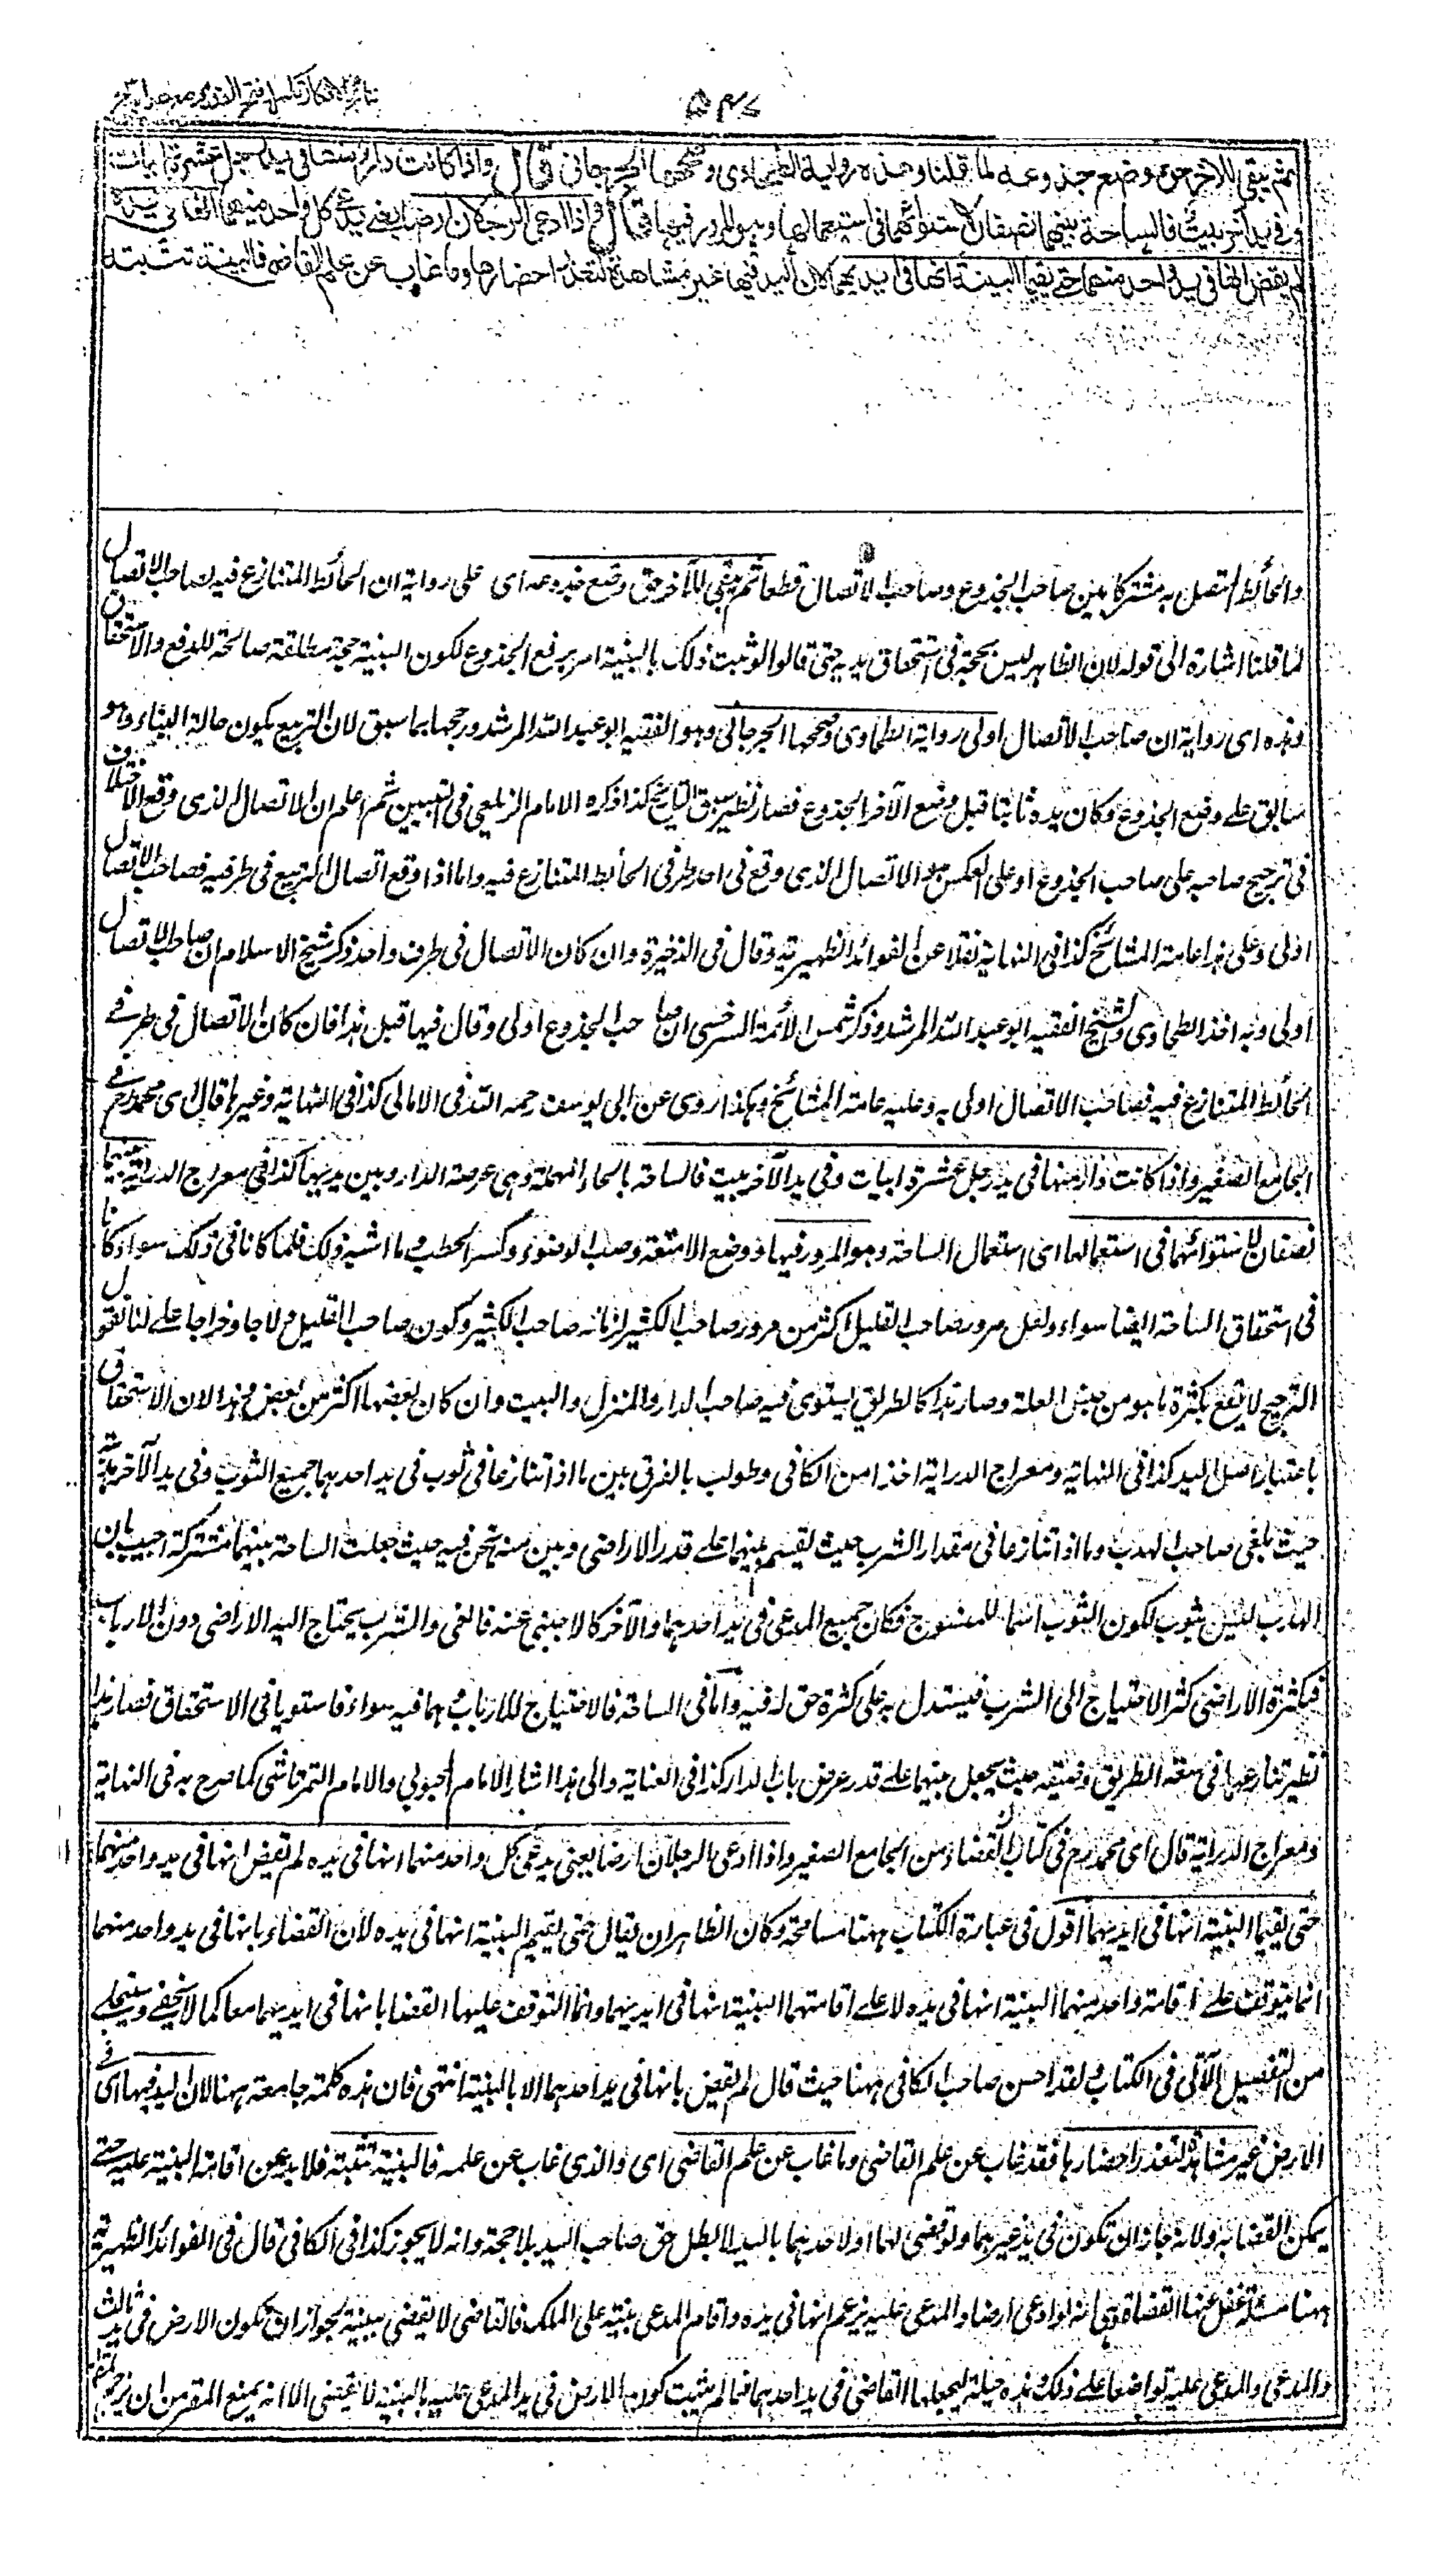 نتائج الافكار تكملة فتح القدير مع هداية
٥٤٧
ثم يبقى للآخر حق وضع جذوعه لما قلنا وهذه رواية الطحاوي وصححها الجرجاني قال واذا كانت دار منها في يد رجل عشرة ابيات
وفي يد آخر بيت فالساحة بينهما نصفان لاستوائهما في استعمالها وهو المرور فيها قال واذا ادعى الرجلان ارضا يعني يدعي كل واحد منهما انها في يده
لم يقض انها في يد واحد منهما حتى يقيما البينة انها في ايديهما لان اليد فيها غير مشاهدة لتعذر احضارها وما غاب عن علم القاضي فالبينة تثبته
والحائط المتصل به مشتركا بين صاحب الجذوع وصاحب الاتصال قطعا ثم يبقى للآخر حق وضع جذوعه اى على رواية ان الحائط المتنازع فيه لصاحب الاتصال
لما قلنا اشارة الى قوله لان الظاهر ليس بحجة في استحقاق يده حتى قالوا لو ثبت ذلك بالبينة امر برفع الجذوع لكون البينة حجة مطلقة صالحة للدفع والاستحقاق
وهذه اى رواية ان صاحب الاتصال اولى رواية الطحاوي وصححها الجرجاني وهو الفقيه ابو عبد الله المرشد ورجحها بما سبق لان التربيع يكون حالة البناء وهو
سابق على وضع الجذوع وكان يده ثابتا قبل وضع الآخر الجذوع فصار نظير سبق التاريخ كذا ذكره الامام الزيلعي في التبيين ثم اعلم ان الاتصال الذي وقع الاختلاف
في ترجيح صاحبه على صاحب الجذوع او على العكس هو الاتصال الذي وقع في احد طرفي الحائط المتنازع فيه واما اذا وقع اتصال التربيع في طرفيه فصاحب الاتصال
اولى وعلى هذا عامة المشائخ كذا في النهاية نقلا عن الفوائد الظهيرية وقال في الذخيرة وان كان الاتصال في طرف واحد ذكر شيخ الاسلام ان صاحب الاتصال
اولى وبه اخذ الطحاوي والشيخ الفقيه ابو عبد الله المرشد وذكر شمس الائمة السرخسي ان صاحب الجذوع اولى وقال فيها قبل هذا فان كان الاتصال في طرفي
الحائط المتنازع فيه فصاحب الاتصال اولى به وعليه عامة المشائخ وهكذا روى عن ابي يوسف رحمه الله في الامالي كذا في النهاية وغيرها قال اى محمد رح في
الجامع الصغير واذا كانت دار منها في يد رجل عشرة ابيات وفي يد الآخر بيت فالساحة بالحاء المهملة وهي عرصة الدار وبين يديها كذا في معراج الدراية بينهما
نصفان لاستوائهما في استعمالها اى استعمال الساحة وهو المرور فيها ووضع الامتعة وصب الوضوء وكسر الحطب وما اشبه ذلك فلما كانا في ذلك سواء كانا
في استحقاق الساحة ايضا سواء ولعل مرور صاحب القليل اكثر من مرور صاحب الكثير لزمانة صاحب الكثير وكون صاحب القليل ولاجا وخراجا على انا نقول
الترجيح لا يقع بكثرة ما هو من جنس العلة وصار هذا كالطريق يستوي فيه صاحب الدار والمنزل والبيت وان كان بعضها اكثر من بعض وهذا لان الاستحقاق
باعتبار اصل اليد كذا في النهاية ومعراج الدراية اخذا من الكافي وطولب بالفرق بين ما اذا تنازعا في ثوب في يد احدهما جميع الثوب وفي يد الآخر هدبه
حيث يلغى صاحب الهدب وما اذا تنازعا في مقدار الشرب حيث يقسم بينهما على قدر الاراضي وبين مسئلة نحن فيه حيث جعلت الساحة بينهما مشتركة اجيب بان
الهدب ليس بثوب لكون الثوب اسما للمنسوج فكان جميع المدعى في يد احدهما والآخر كالاجنبي عنه فالغى والشرب يحتاج اليه الاراضي دون الارباب
فبكثرة الاراضي كثر الاحتياج الى الشرب فيستدل به على كثرة حق له فيه واما في الساحة فالاحتياج للارباب وهما فيه سواء فاستويا في الاستحقاق فصار هذا
نظير تنازعهما في سعة الطريق وضيقه حيث يجعل بينهما على قدر عرض باب الدار كذا في العناية والى هذا اشار الامام المحبوبي والامام التمرتاشي كما صرح به في النهاية
ومعراج الدراية قال اى محمد رح في كتاب القضاء من الجامع الصغير واذا ادعى الرجلان ارضا يعني يدعي كل واحد منهما انها في يده لم يقض انها في يد واحد منهما
حتى يقيما البينة انها في ايديهما اقول في عبارة الكتاب ههنا مسامحة وكان الظاهر ان يقال حتى يقيم البينة انها في يده لان القضاء بانها في يد واحد منهما
انما يتوقف على اقامة واحد منهما البينة انها في يده لا على اقامتهما البينة انها في ايديهما وانما المتوقف عليها القضا بانها في ايديهما معا كما لا يخفى وستنجلي
من التفصيل الآتي في الكتاب ولقد احسن صاحب الكافي ههنا حيث قال لم يقض بانها في يد احدهما الا بالبينة انتهى فان هذه كلمة جامعة ههنا لان اليد فيها اى في
الارض غير مشاهدة لتعذر احضارها فقد غاب عن علم القاضي وما غاب عن علم القاضي اى والذي غاب عن علمه فالبينة تثبته فلا بد من اقامة البينة عليه حتى
يمكن القضا به ولانه جاز ان تكون في يد غيرهما ولو قضى لهما او لاحدهما باليد لا بطل حق صاحب اليد بلا حجة وانه لا يجوز كذا في الكافي قال في الفوائد الظهيرية
ههنا مسئلة غفل عنها القضاة وهي انه لو ادعى ارضا والمدعى عليه يزعم انها في يده واقام المدعي بينة على الملك فالقاضي لا يقضي ببينة لجواز ان تكون الارض في يد ثالث
والمدعي والمدعى عليه تواضعا على ذلك هذه حيلة ليجعلها القاضي في يد احدهما فما لم يثبت كون الارض في يد المدعى عليه بالبينة لا يقضي الا انه يمنع المقر من ان يزاحم